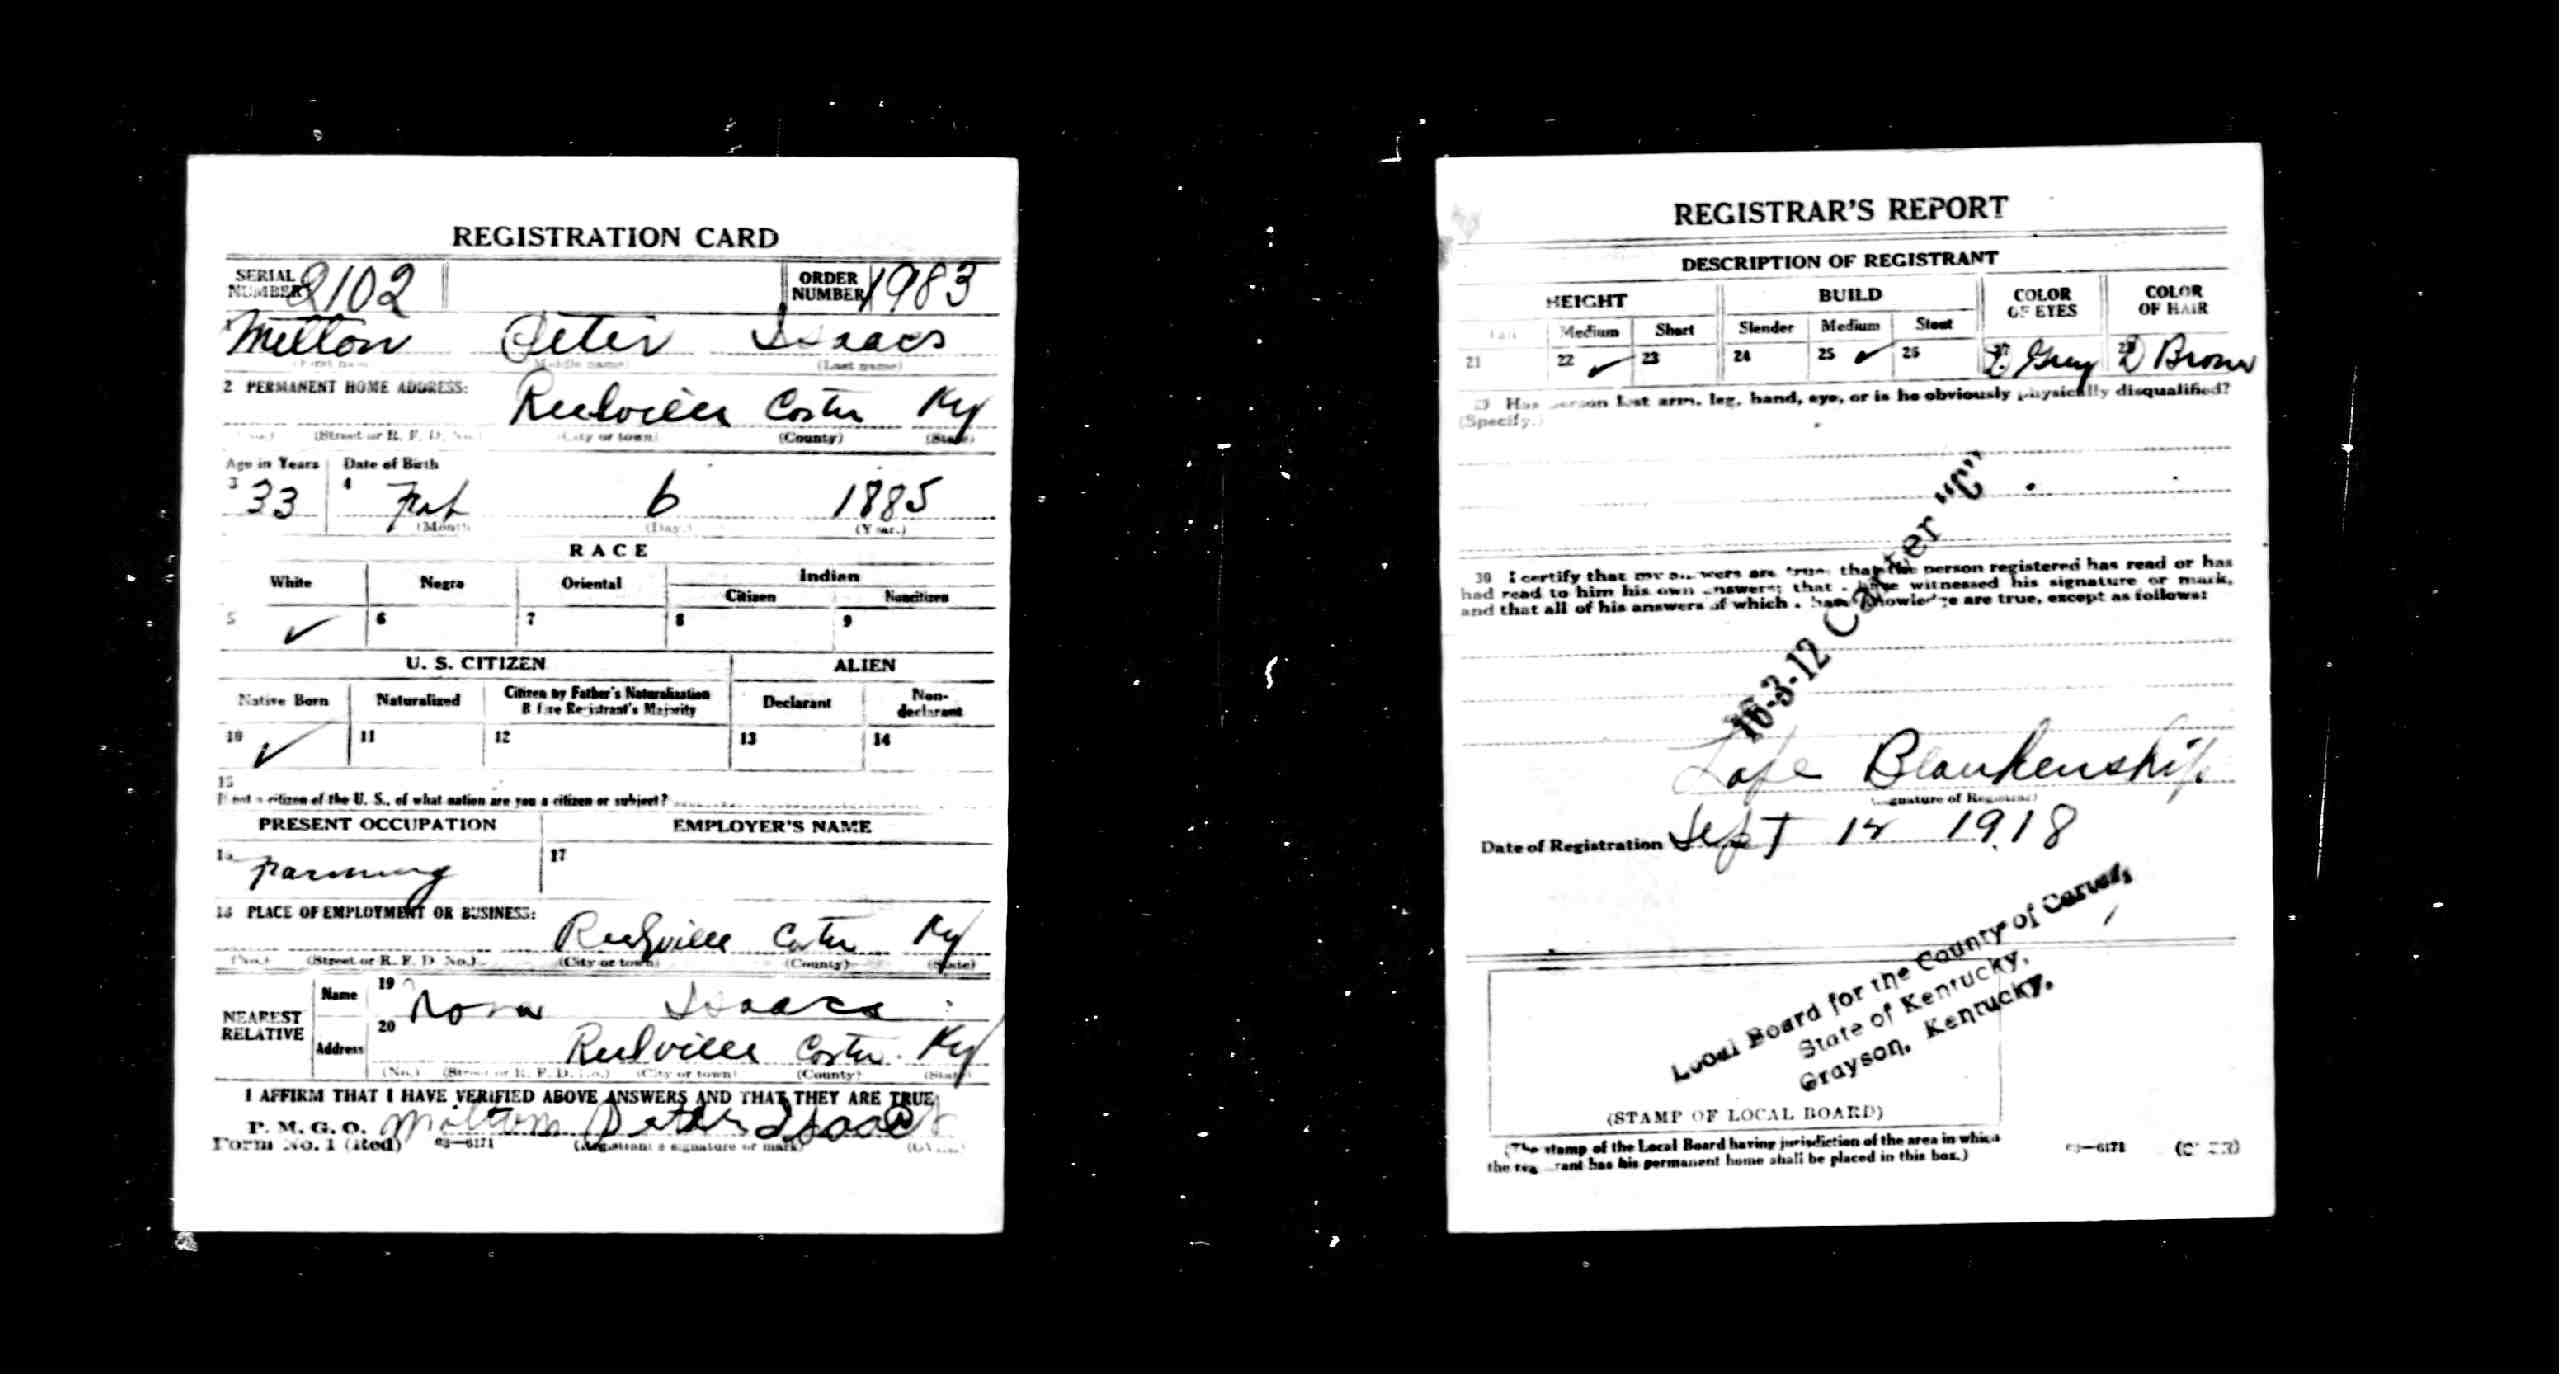 REGISTRATION CARD
SERIAL NUMBER 2102 ORDER NUMBER 1983
Milton Peter Isaacs
(First name) (Middle name) (Last name)
2 PERMANENT HOME ADDRESS:
Ky
(No.) (Street or R. F. D. No.) (City or town) (County) (State)
Age in Years Date of Birth
3 33 4 Feb 6 1885
(Month) (Day.) (Year.)
RACE
White Negro Oriental Indian
Citizen Noncitizen
5 ✓ 6 7 8 9
U. S. CITIZEN ALIEN
Native Born Naturalized Citizen by Father's Naturalization Before Registrant's Majority Declarant Non-declarant
10 ✓ 11 12 13 14
15
If not a citizen of the U. S., of what nation are you a citizen or subject?
PRESENT OCCUPATION EMPLOYER'S NAME
16 Farming 17
18 PLACE OF EMPLOYMENT OR BUSINESS:
Ky
(No.) (Street or R. F. D. No.) (City or town) (County) (State)
NEAREST RELATIVE
Name 19 Isaacs
Address 20 Ky
(No.) (Street or R. F. D. No.) (City or town) (County) (State)
I AFFIRM THAT I HAVE VERIFIED ABOVE ANSWERS AND THAT THEY ARE TRUE
P. M. G. O. Milton Peter Isaacs
Form No. 1 (Red) 03—6171 (Registrant's signature or mark)
REGISTRAR'S REPORT
DESCRIPTION OF REGISTRANT
HEIGHT BUILD COLOR OF EYES COLOR OF HAIR
Tall Medium Short Slender Medium Stout
21 22 ✓ 23 24 25 ✓ 26 27 Gray 28 Brown
29 Has person lost arm, leg, hand, eye, or is he obviously physically disqualified?
(Specify.)
30 I certify that my answers are true; that the person registered has read or has
had read to him his own answers; that I have witnessed his signature or mark,
and that all of his answers of which I have knowledge are true, except as follows:
16-3-12 Carter "C"
Lafe Blankenship
(Signature of Registrar)
Date of Registration Sept 12 1918
Local Board for the County of Carter,
State of Kentucky,
Grayson, Kentucky.
(STAMP OF LOCAL BOARD)
(The stamp of the Local Board having jurisdiction of the area in which
the registrant has his permanent home shall be placed in this box.)
03—6171